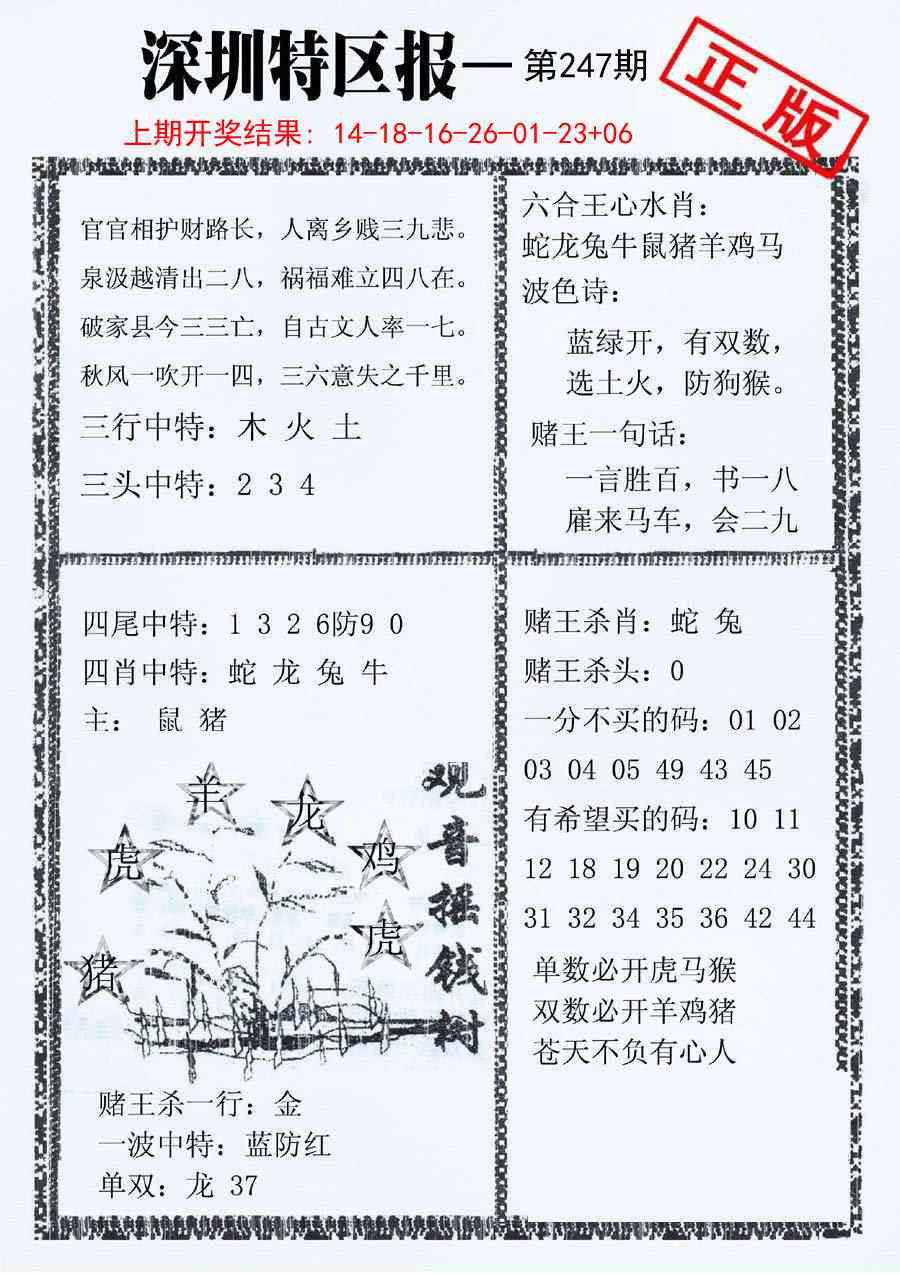 深圳特区报—第247期
正版
上期开奖结果：14-18-16-26-01-23+06
官官相护财路长，人离乡贱三九悲。
泉汲越清出二八，祸福难立四八在。
破家县今三三亡，自古文人率一七。
秋风一吹开一四，三六意失之千里。
三行中特：木 火 土
三头中特：2 3 4
六合王心水肖：
蛇龙兔牛鼠猪羊鸡马
波色诗：
蓝绿开，有双数，
选土火，防狗猴。
赌王一句话：
一言胜百，书一八
雇来马车，会二九
四尾中特：1 3 2 6防9 0
四肖中特：蛇 龙 兔 牛
主： 鼠 猪
羊
龙
虎
鸡
虎
猪
观音摇钱树
赌王杀一行：金
一波中特：蓝防红
单双：龙 37
赌王杀肖：蛇 兔
赌王杀头：0
一分不买的码：01 02
03 04 05 49 43 45
有希望买的码：10 11
12 18 19 20 22 24 30
31 32 34 35 36 42 44
单数必开虎马猴
双数必开羊鸡猪
苍天不负有心人